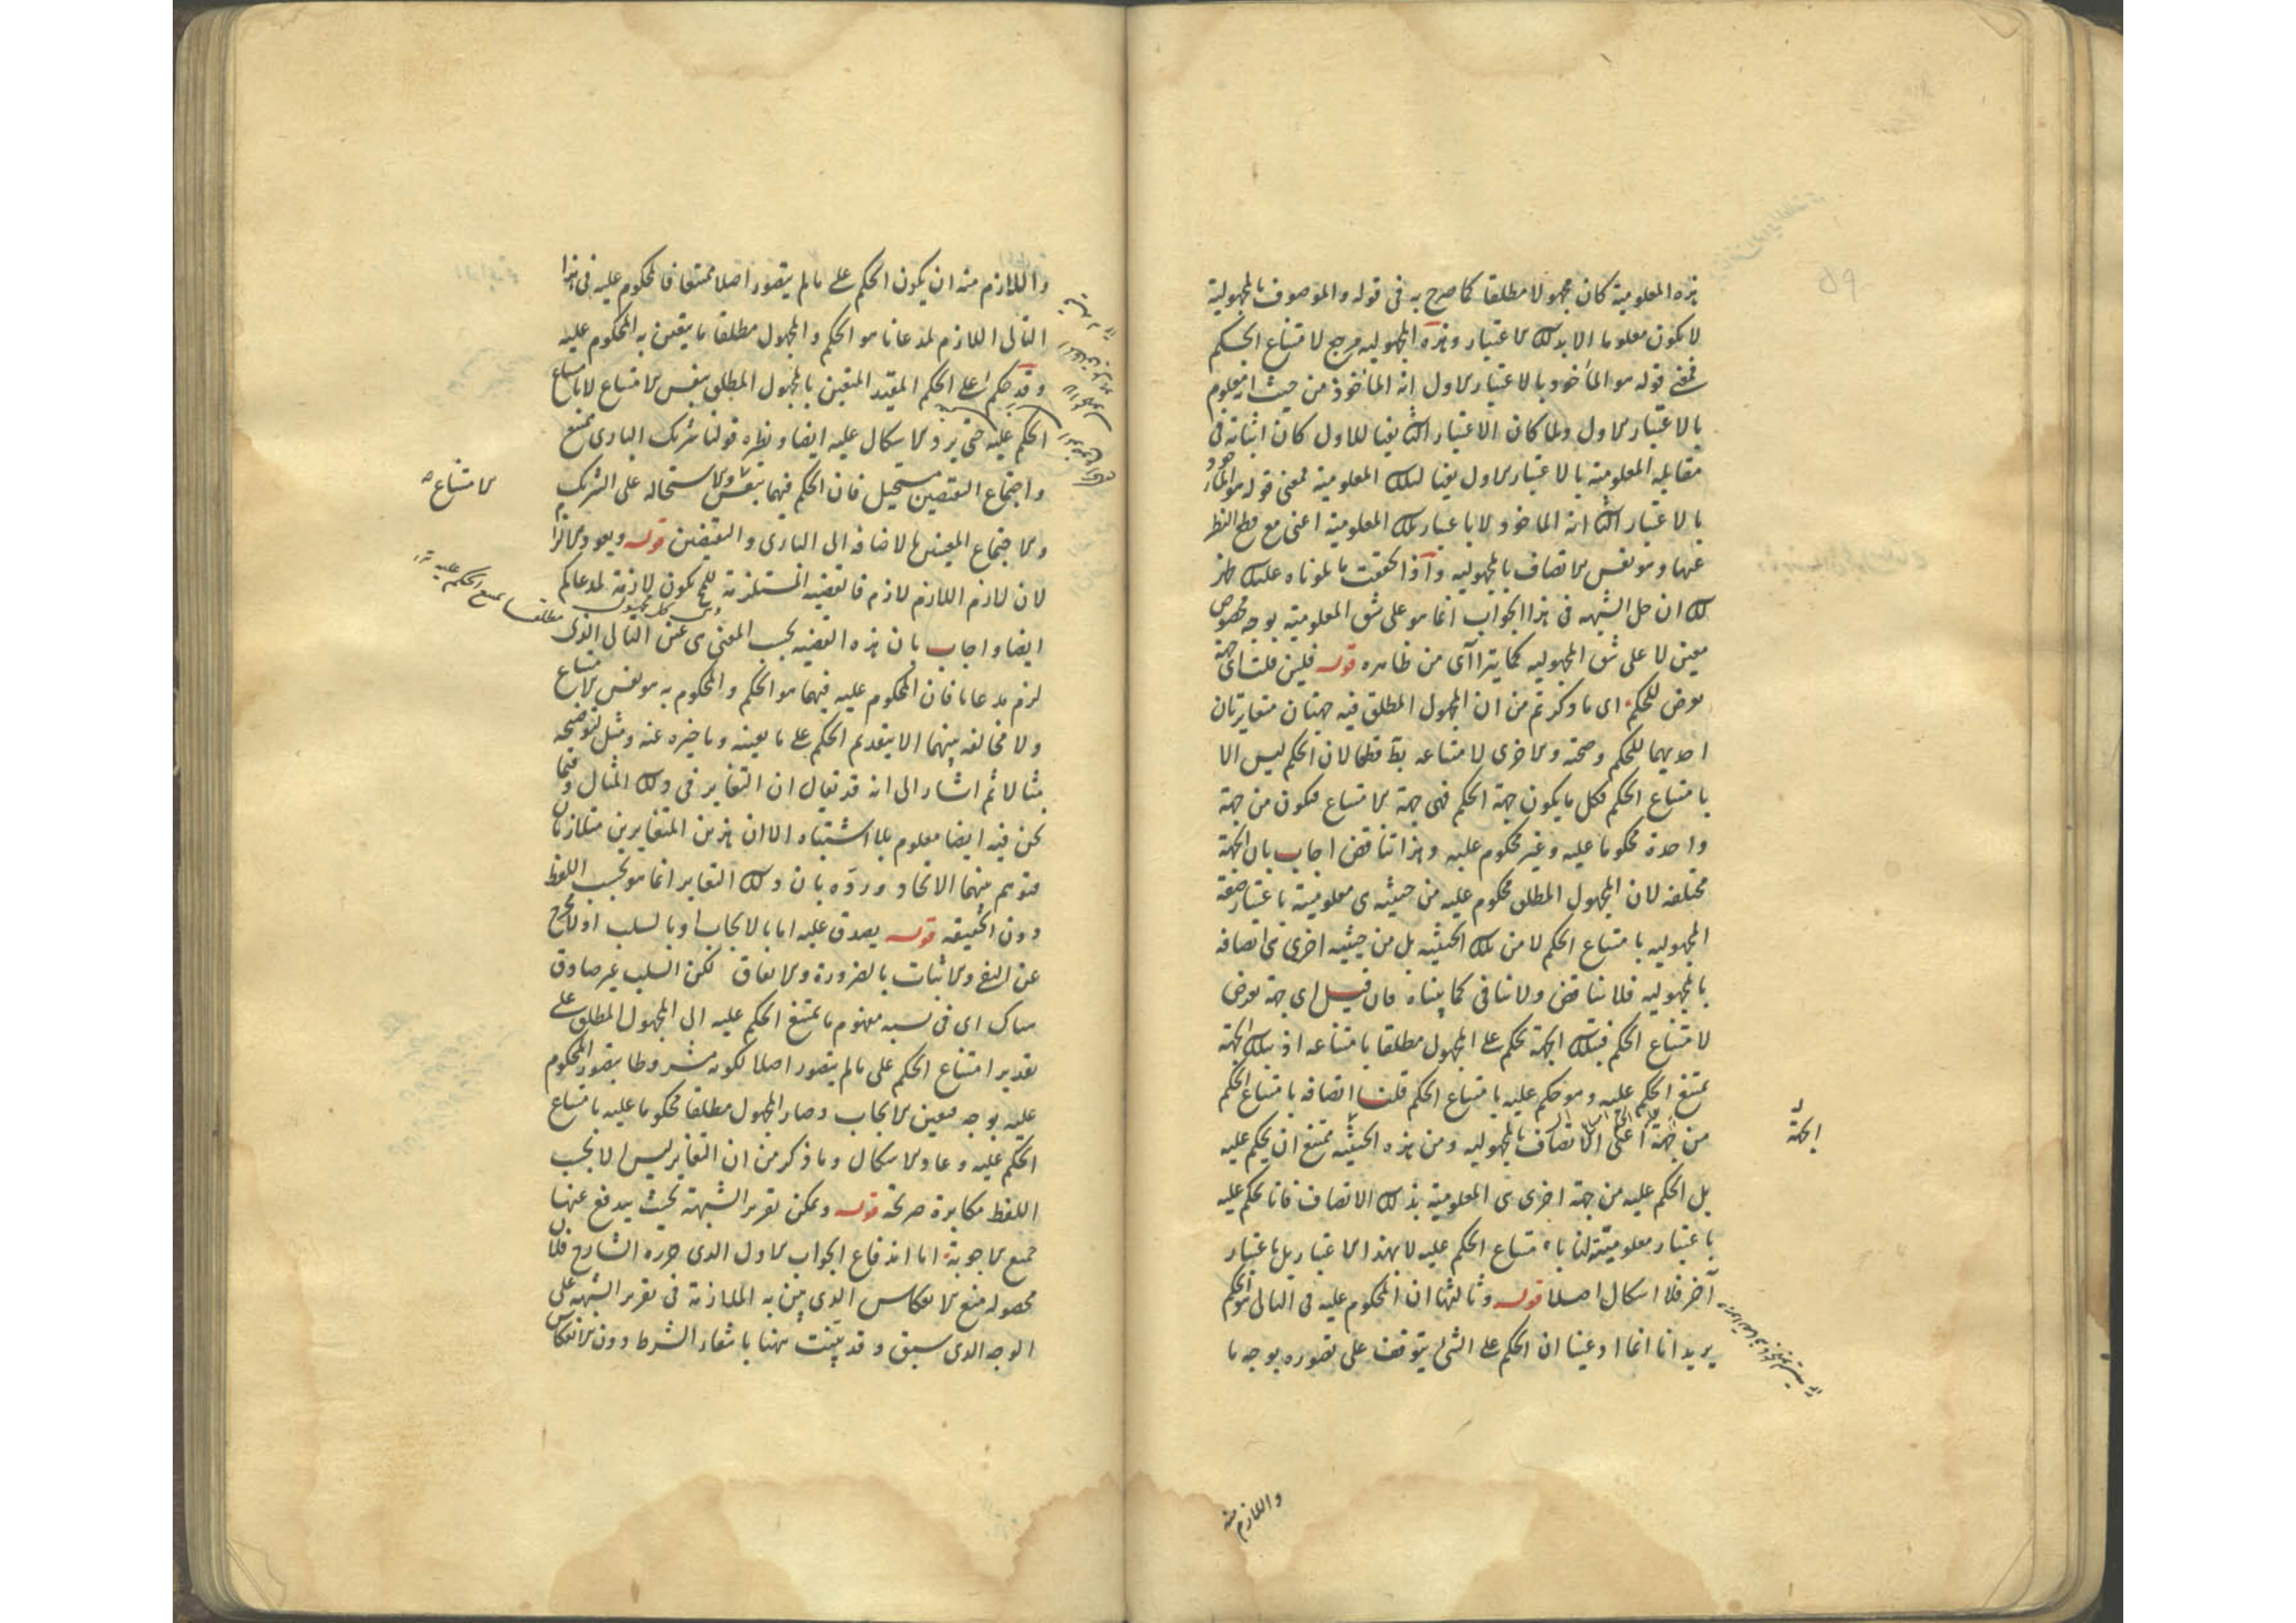 هذه المعلومية كان مجهولا مطلقا كما صرح به فى قوله والموصوف بالمجهولية
لا يكون معلوما الا بذلك الاعتبار وهذه المجهولية مرجح لامتناع الحكم
فمعنى قوله هو المأخوذ بالاعتبار الاول انه المأخوذ من حيث انه معلوم
بالاعتبار الاول ولما كان الاعتبار الثانى للاول كان اثباته فى
مقابله المعلومية بالاعتبار الاول تلك المعلومية فمعنى قوله هو المأخوذ
بالاعتبار الثانى انه المأخوذ لا باعتبار تلك المعلومية اعنى مع قطع النظر
عنها وهو نفس الاتصاف بالمجهولية واذا تحققت ما تلوناه عليك ظهر
لك ان حل الشبهه فى هذا الجواب انما هو على شق المعلومية بوجه مخصوص
معين لا على شق المجهولية كما يترا آى من ظاهره قوله فلئن قلت اى جهة
تعرض للحكم اى ما ذكرتم من ان المجهول المطلق فيه جهتان متغايرتان
احديهما للحكم وصحته والاخرى لامتناعه بط قطعا لان الحكم ليس الا
بامتناع الحكم فكل ما يكون جهة الحكم فهى جهة الامتناع فيكون من جهة
واحدة محكوما عليه وغير محكوم عليه وهذا تناقض اجاب بان الجهة
مختلفه لان المجهول المطلق محكوم عليه من حيثيه هى معلوميته باعتبار صفة
المجهوليه بامتناع الحكم لا من تلك الحيثيه بل من حيثيه اخرى هى اتصافه
بالمجهوليه فلا تناقض ولا تنافى كما بيناه فان قيل اى جهة تعرض
لامتناع الحكم فبتلك الجهة نحكم على المجهول مطلقا بامتناعه اذ بتلك الجهة
يمتنع الحكم عليه وهو حكم عليه بامتناع الحكم قلنا اتصافه بامتناع الحكم
من جهة اعنى الاتصاف بالمجهوليه ومن هذه الحيثيه يمتنع ان يحكم عليه
بل الحكم عليه من جهة اخرى هى المعلومية بذلك الاتصاف فانا نحكم عليه
باعتبار معلوميته لنا بامتناع الحكم عليه لا بهذا الاعتبار بل باعتبار
آخر فلا اشكال اصلا قوله وثالثها ان المحكوم عليه فى التالى هو الحكم
يريد انا انما ادعينا ان الحكم على الشئ يتوقف على تصوره بوجه ما
الجهة
واللازم منه
واللازم منه ان يكون الحكم على ما لم يتصور اصلا ممتنعا فالمحكوم عليه فى هذا
التالى اللازم لمدعانا هو الحكم والمجهول مطلقا ما يتعين به المحكوم عليه
وقد حكم على الحكم المقيد المتعين بالمجهول المطلق بنفس الامتناع لا بامتناع
الحكم عليه حتى يرد الاشكال عليه ايضا ونظيره قولنا شريك البارى ممتنع
واجتماع النقيضين مستحيل فان الحكم فيهما بنفس والاستحاله على الشريك
والاجتماع المعينين بالاضافه الى البارى والنقيضين قوله ويعود الالزام
لان لازم اللازم لازم فالقضيه المستلزمة للمح تكون لازمة لمدعاكم
ايضا واجاب بان هذه القضيه بحسب المعنى هى عين التالى الذى
لزم مدعانا فان المحكوم عليه فيهما هو الحكم والمحكوم به هو نفس الامتناع
ولا مخالفه بينهما الا بتقديم الحكم على ما يعينه وتاخيره عنه ومثل توضيحه
مثالا ثم اشار الى انه قد يقال ان التغاير فى ذلك المثال وفيما
نحن فيه ايضا معلوم بلا اشتباه الا ان هذين المتغايرين متلازمان
فتوهم منهما الاتحاد ورده بان ذلك التغاير انما هو بحسب اللفظ
دون الحقيقه قوله يصدق عليه اما بالايجاب او بالسلب اذ لا مخرج
عن النفى والاثبات بالضرورة والاتفاق لكن السلب غير صادق
هناك اى فى نسبه مفهوم ما يمتنع الحكم عليه الى المجهول المطلق على
تقدير امتناع الحكم على ما لم يتصور اصلا لكونه مشروطا بتصور المحكوم
عليه بوجه فتعين الايجاب وصار المجهول مطلقا محكوما عليه بامتناع
الحكم عليه وعاد الاشكال وما ذكر من ان التغاير ليس الا بحسب
اللفظ مكابرة صريحة قوله ويمكن تقرير الشبهة بحيث يندفع عنها
جميع الاجوبة اما اندفاع الجواب الاول الذى حرره الشارح فلان
محصوله منع الانعكاس الذى بين به الملازمة فى تقرير الشبهه على
الوجه الذى سبق وقد بينت ههنا بانتفاء الشرط دون الانعكاس
الامتناع
مطلقا يمتنع الحكم عليه